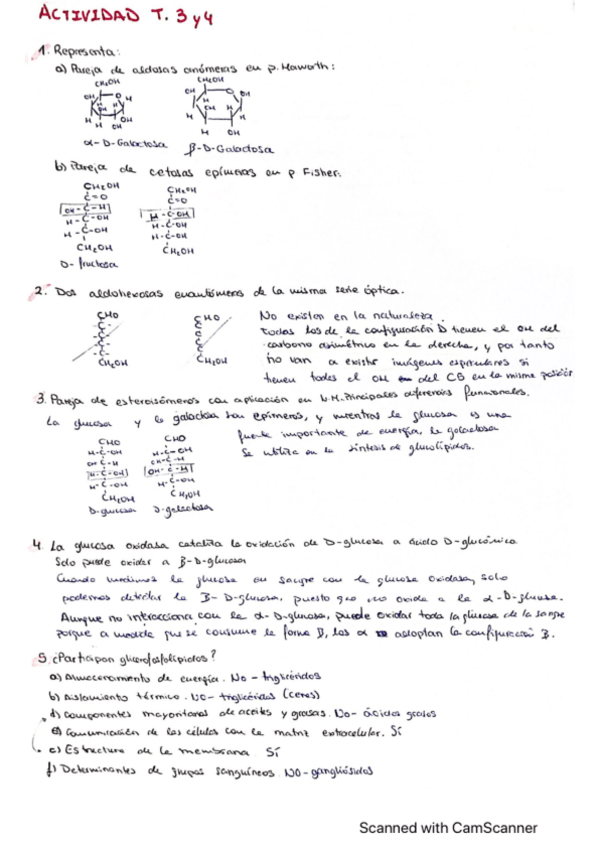 ACTIVIDAD T. 3 y 4
1. Representa:
a) Pareja de aldosas anómeras en p. Haworth:
CH₂OH CH₂OH
OH O H OH O OH
H H OH H OH H
H OH H OH
α-D-Galactosa β-D-Galactosa
b) Pareja de cetosas epímeras en p Fisher:
CH₂OH CH₂OH
C=O C=O
OH-C-H H-C-OH
H-C-OH H-C-OH
H-C-OH H-C-OH
CH₂OH CH₂OH
D-fructosa
2. Dos aldohexosas enantómeros de la misma serie óptica.
CHO CHO
-C- C
-C- C
-C- C
-C- C
CH₂OH CH₂OH
No existen en la naturaleza.
todas los de la configuración D tienen el OH del
carbono asimétrico en la derecha, y por tanto
no van a existir imágenes espectulares si
tienen todas el OH del C5 en la misma posición
3. Pareja de estereoisómeros con aplicación en b.M. Principales diferencias funcionales.
La glucosa y la galactosa son epímeros, y mientras la glucosa es una
fuente importante de energía, la galactosa
se utiliza en la síntesis de glucolípidos.
CHO CHO
H-C-OH H-C-OH
OH-C-H OH-C-H
H-C-OH OH-C-H
H-C-OH H-C-OH
CH₂OH CH₂OH
D-glucosa D-galactosa
4. La glucosa oxidasa cataliza la oxidación de D-glucosa a ácido D-glucónico
Solo puede oxidar a β-D-glucosa
Cuando medimos la glucosa en sangre con la glucosa oxidasa, solo
podemos detectar la β-D-glucosa, puesto que no oxida a la α-D-glucosa.
Aunque no interacciona con la α-D-glucosa, puede oxidar toda la glucosa de la sangre
porque a medida que se consume la forma β, los α adoptan la configuración β.
5. ¿Participan glicerofosfolípidos?
a) Almacenamiento de energía. No - triglicéridos
b) Aislamiento térmico. No - triglicéridos (ceras)
d) Componentes mayoritarios de aceites y grasas. No - ácidos grasos
e) Comunicación de las células con la matriz extracelular. Sí
c) Estructura de la membrana. Sí
f) Determinantes de grupos sanguíneos. NO - gangliósidos
Scanned with CamScanner